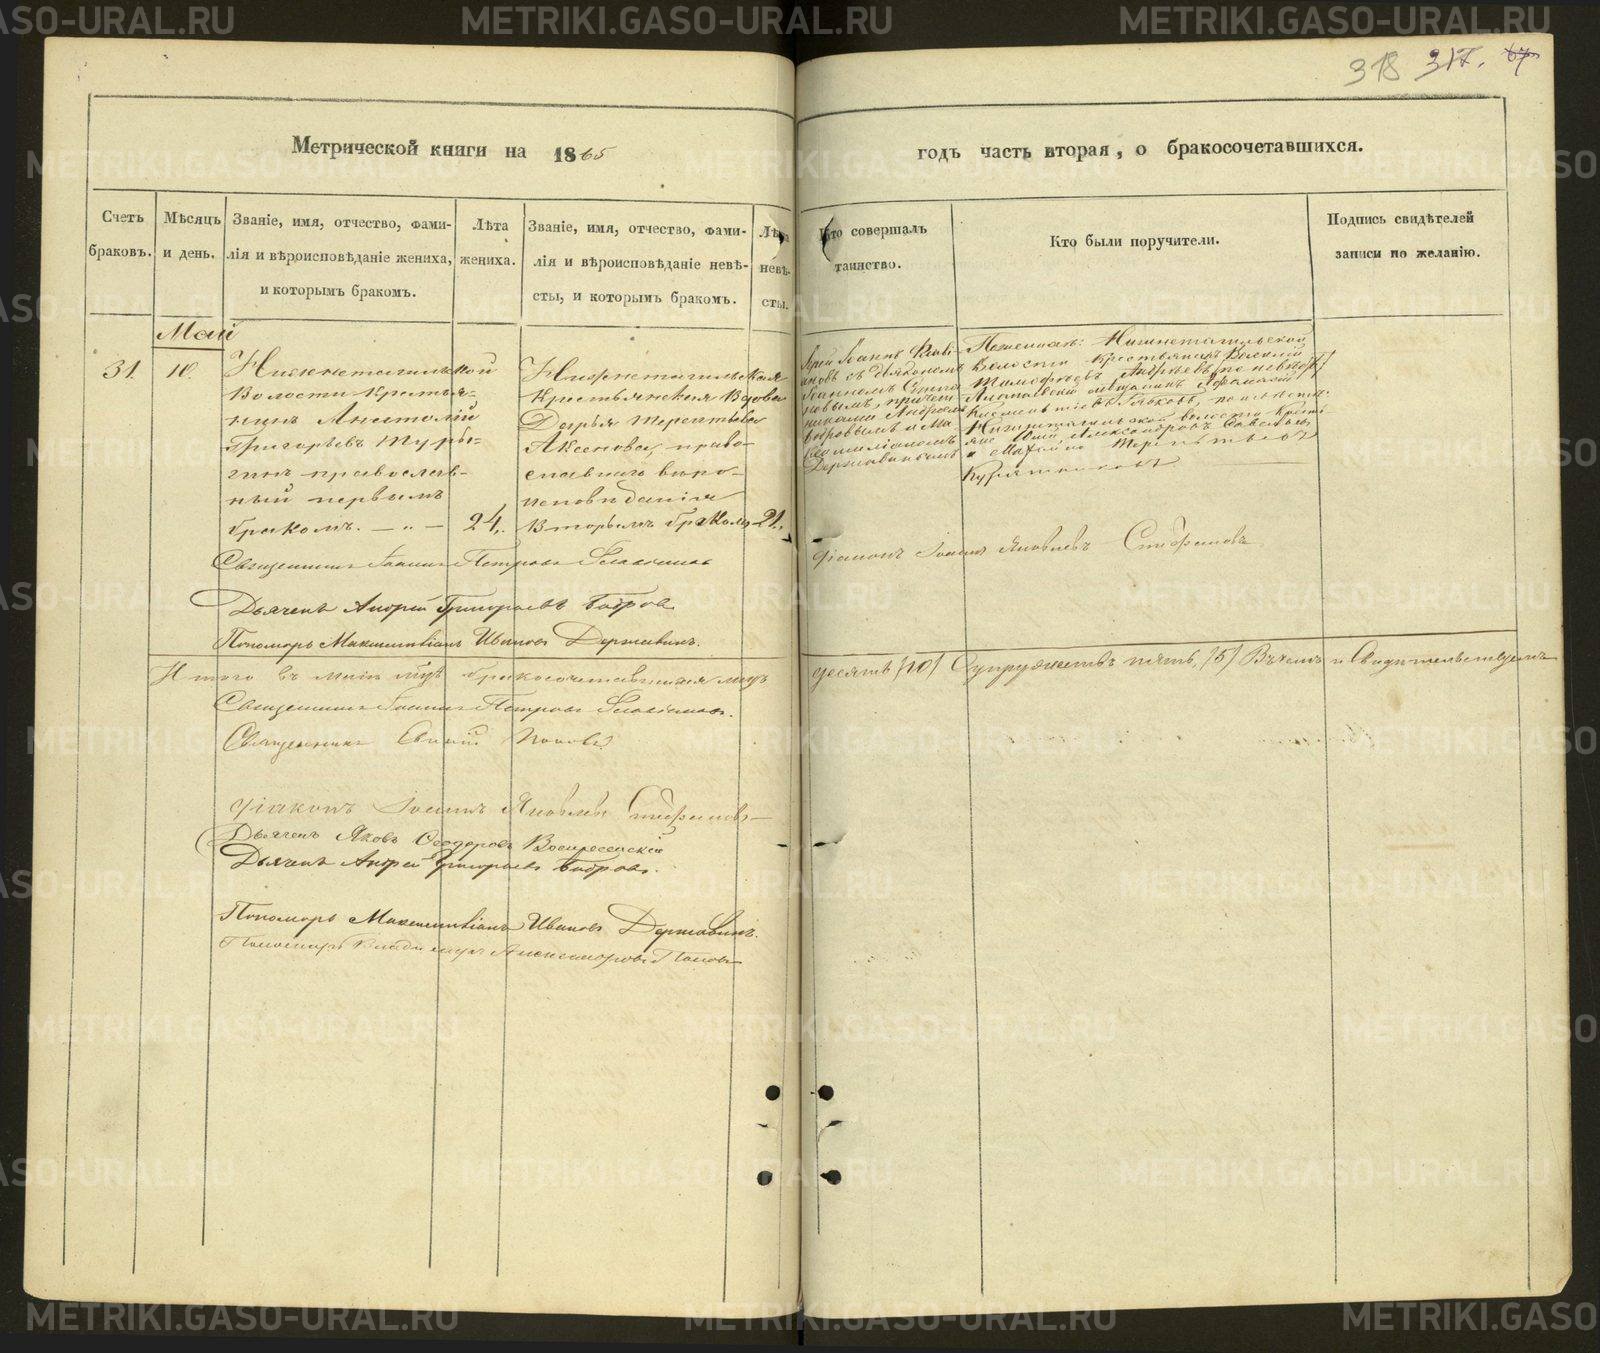 318 317. 67
Метрической книги на 1865
годъ часть вторая, о бракосочетавшихся.
Счетъ браковъ.
Мѣсяцъ и день.
Званіе, имя, отчество, фами-
лія и вѣроисповѣданіе жениха,
и которымъ бракомъ.
Лѣта
жениха.
Званіе, имя, отчество, фами-
лія и вѣроисповѣданіе невѣ-
сты, и которымъ бракомъ.
Лѣта
невѣ-
сты.
Кто совершалъ
таинство.
Кто были поручители.
Подпись свидѣтелей
записи по желанію.
Май
31. 10.
Нижнетагильской
Волости Крестья-
нинъ Анатолій
Григорьевъ Туры-
гинъ православ-
ный первымъ
бракомъ. — „ — 24.
Нижнетагильская
Крестьянская Вдова
Дарья Терентьева
Аксенова, право-
славнаго вѣро-
исповѣданія
Вторымъ бракомъ 21.
Іерей Іоаннъ Слові-
ановъ съ Діакономъ
Іоанномъ Стефа-
новымъ, причет-
никами Андреемъ
Бобровымъ и Ма-
ксимиліаномъ
Державинымъ
По женихѣ: Нижнетагильской
Волости Крестьянинъ Василій
Тимофѣевъ Андреевъ, по невѣстѣ
Нижнетагильской волости Кресть-
яне Александровъ Савельевъ
и Матвѣй Терентьевъ
Священникъ Іоаннъ Петровъ Словіановъ
Діаконъ Іоаннъ Яковлевъ Стефановъ
Дьячекъ Андрей Григорьевъ Бобровъ
Пономарь Максимиліанъ Ивановъ Державинъ.
Итого въ маѣ м҃цѣ бракосочетавшихся лицъ
десять /10/ Супружествъ пять, /5/ В чемъ и Свидѣтельствуемъ
Священникъ Іоаннъ Петровъ Словіановъ.
Священникъ Поповъ
Діаконъ Іоаннъ Яковлевъ Стефановъ—
Дьячекъ Яковъ Ѳеодоровъ Воскресенскій
Дьячекъ Андрей Григорьевъ Бобровъ.
Пономарь Максимиліанъ Ивановъ Державинъ.
Пономарь Владиміръ Александровъ Поповъ
METRIKI.GASO-URAL.RU